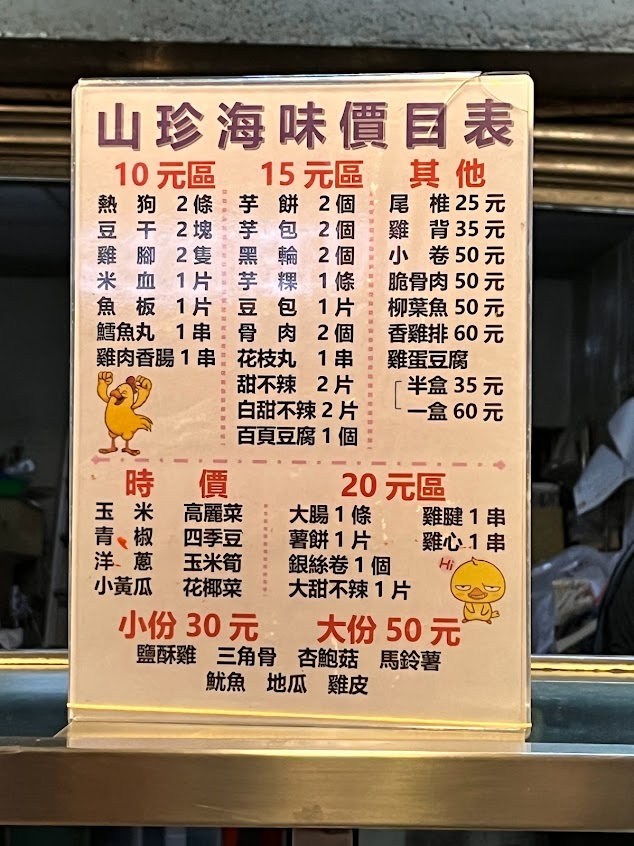 山珍海味價目表
10元區
熱狗 2條
豆干 2塊
雞腳 2隻
米血 1片
魚板 1片
鱈魚丸 1串
雞肉香腸 1串
15元區
芋餅 2個
芋包 2個
黑輪 2個
芋粿 1條
豆包 1片
骨肉 2個
花枝丸 1串
甜不辣 2片
白甜不辣 2片
百頁豆腐 1個
其他
尾椎 25元
雞背 35元
小卷 50元
脆骨肉 50元
柳葉魚 50元
香雞排 60元
雞蛋豆腐
半盒 35元
一盒 60元
時價
玉米 高麗菜
青椒 四季豆
洋蔥 玉米筍
小黃瓜 花椰菜
20元區
大腸 1條 雞腱 1串
薯餅 1片 雞心 1串
銀絲卷 1個
大甜不辣 1片
Hi
小份30元 大份50元
鹽酥雞 三角骨 杏鮑菇 馬鈴薯
魷魚 地瓜 雞皮